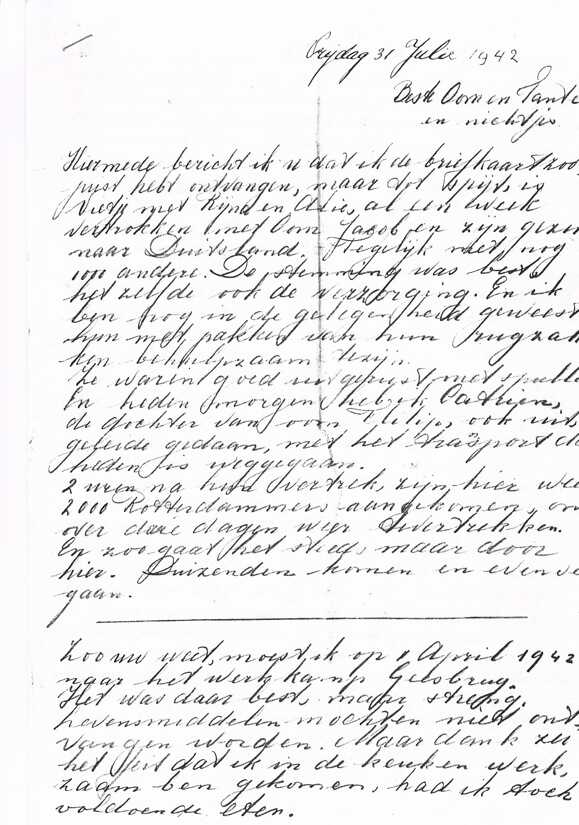 Vrijdag 31 Julie 1942
Beste Oom en Tante
en nichtjes
Hiermede bericht ik u dat ik de briefkaart zoo
juist hebt ontvangen, maar tot spijt, is
met en als een week
vertrokken met Oom Jacob en zijn gezin
naar Duitsland. Tegelijk met nog
1000 andere. De stemming was best
het zelfde ook de verzorging. En ik
ben nog in de gelegenheid geweest
hun met pakken van hun rugzak
ken behulpzaam te zijn.
Ze waren goed uitgerust met spulle
En heden morgen heb ik Catrien,
de dochter van oom Flip, ook uit,
geleide gedaan, met het trasport da
heden is weggegaan.
2 uren na hun vertrek, zijn hier wee
2000 Rotterdammers aangekomen, om
over deze dagen weer te vertrekken.
En zoo gaat het steeds maar door
hier. Duizenden komen en eveneens
gaan.
Zoo uw weet, moest ik op 1 April 1942
naar het werkkamp Gelsbrug.
Het was daar best, maar streng.
Levensmiddelen mochten niet ont,
vangen worden. Maar dank zei
het feit dat ik in de keuken werk,
zaam ben gekomen, had ik toch
voldoende eten.